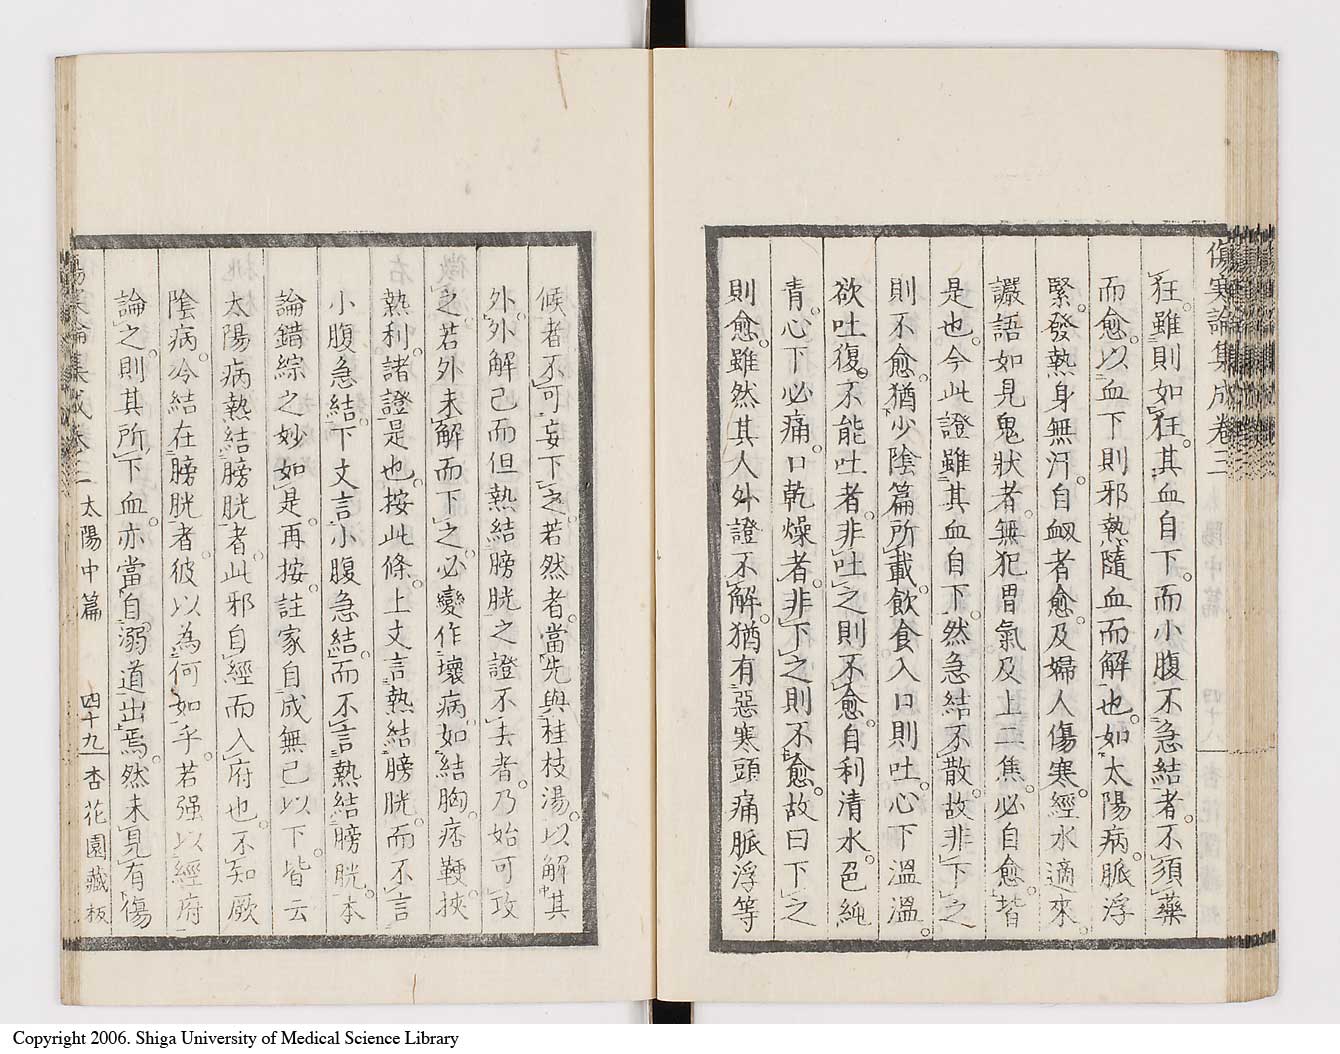 傷寒論集成卷三
狂。雖則如狂。其血自下。而小腹不急結者。不須藥
而愈。以血下則邪熱隨血而解也。如太陽病。脈浮
緊。發熱身無汗。自衂者愈。及婦人傷寒。經水適來。
讝語如見鬼狀者。無犯胃氣及上二焦。必自愈。皆
是也。今此證雖其血自下。然急結不散。故非下之
則不愈。猶少陰篇所載飲食入口則吐。心下溫溫。
欲吐。復不能吐者。非吐之則不愈。自利清水。色純
青。心下必痛。口乾燥者。非下之則不愈。故曰下之
則愈。雖然其人外證不解。猶有惡寒頭痛脈浮等
候者。不可妄下之。若然者。當先與桂枝湯。以解其
外。外解已而但熱結膀胱之證不去者。乃始可攻
之。若外未解而下之。必變作壞病。如結胸。痞鞕。挾
熱利諸證是也。按此條。上文言熱結膀胱。而不言
小腹急結。下文言小腹急結。而不言熱結膀胱。本
論錯綜之妙如是。再按。註家自成無己以下。皆云
太陽病熱結膀胱者。此邪自經而入府也。不知厥
陰病。冷結在膀胱者。彼以為何如乎。若强以經府
論之。則其所下血。亦當自溺道出焉。然未見有傷
傷寒論集成卷三 太陽中篇 四十九 杏花園藏板
Copyright 2006. Shiga University of Medical Science Library